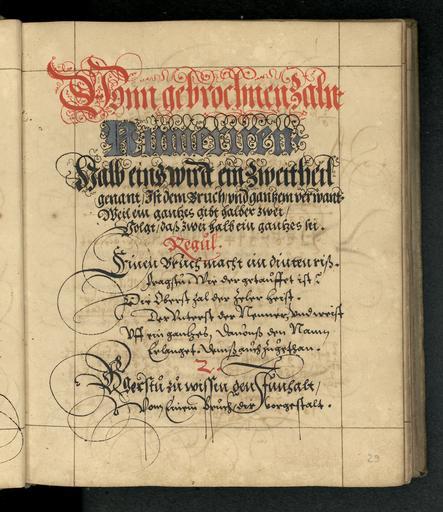 Vonn gebrochnen Zaln
Numeriren
Halb eins wird ein Zweitheil
genant, Ist dem Bruch, und gantzem verwant.
Weil ein gantzes gibt halber zwei,
Volgt, daß zwei halb ein gantzes sei.
Regul.
Einen Bruch macht ein dinten riß.
fragstu, Wie der getauffet ist?
Die Oberst zal der Zeler heist.
Der Unterst der Nenner, und weist
Uff ein gantzes, davonß den Nam
Erlanget.
2.
Begerstu zu wissen den Innhalt,
Vom Einem Bruch, dir vorgestalt.
29